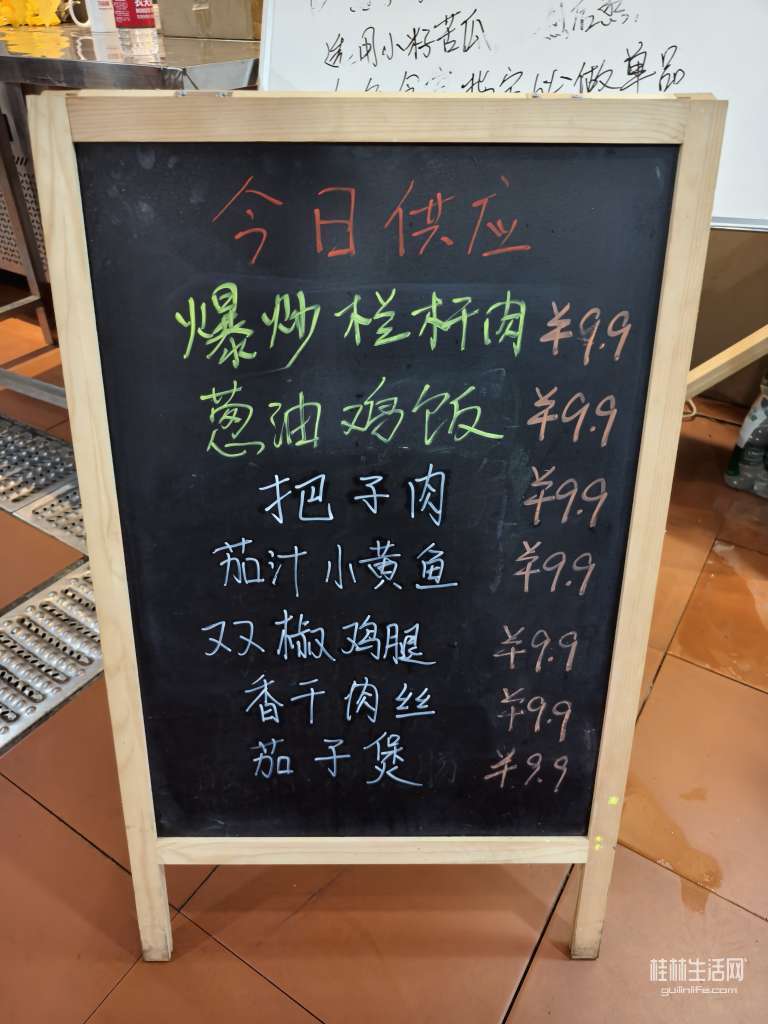 选用小籽苦瓜
做单品
今日供应
爆炒栏杆肉 ¥9.9
葱油鸡饭 ¥9.9
把子肉 ¥9.9
茄汁小黄鱼 ¥9.9
双椒鸡腿 ¥9.9
香干肉丝 ¥9.9
茄子煲 ¥9.9
桂林生活网
guilinlife.com